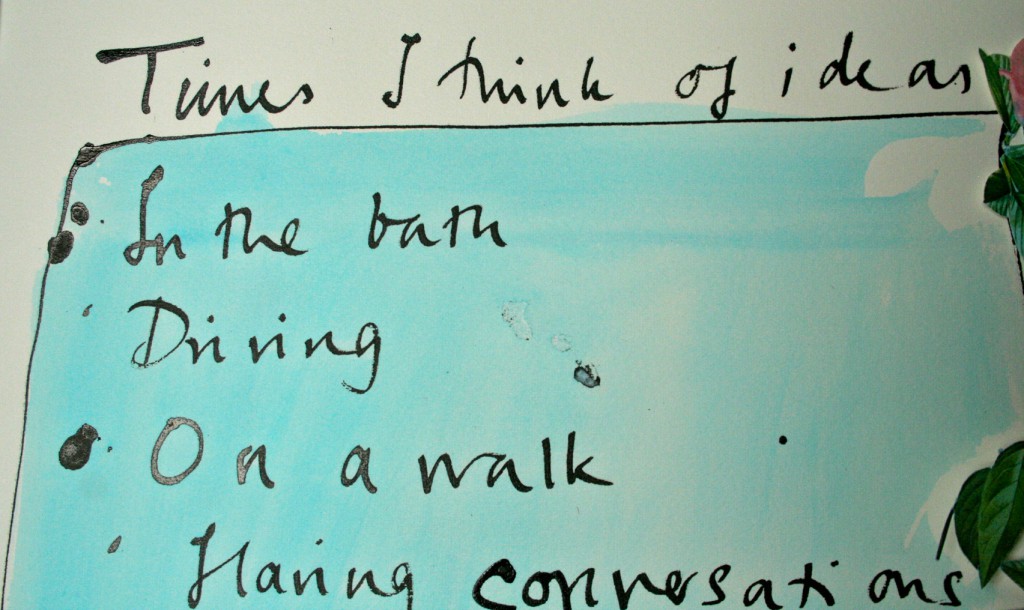 Times I think of ideas
In the bath
Driving
On a walk
Having conversations